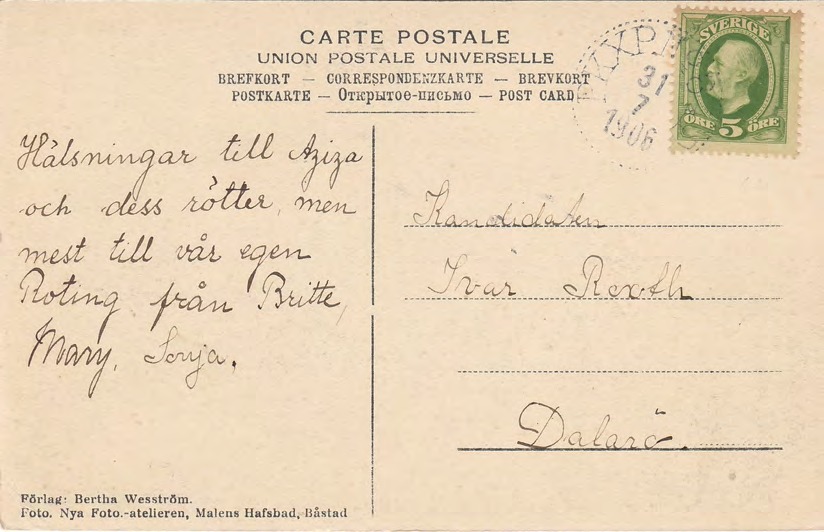 CARTE POSTALE
UNION POSTALE UNIVERSELLE
BREFKORT — CORRESPONDENZKARTE — BREVKORT
POSTKARTE — Открытое-письмо — POST CARD
31
7
1906
SVERIGE
ÖRE 5 ÖRE
Hälsningar till Aziza
och dess rötter, men
mest till vår egen
Roting från Britte,
Mary, Sonja.
Kandidaten
Ivar Rexth
Dalarö.
Förlag: Bertha Wesström.
Foto. Nya Foto.-atelieren, Malens Hafsbad, Båstad